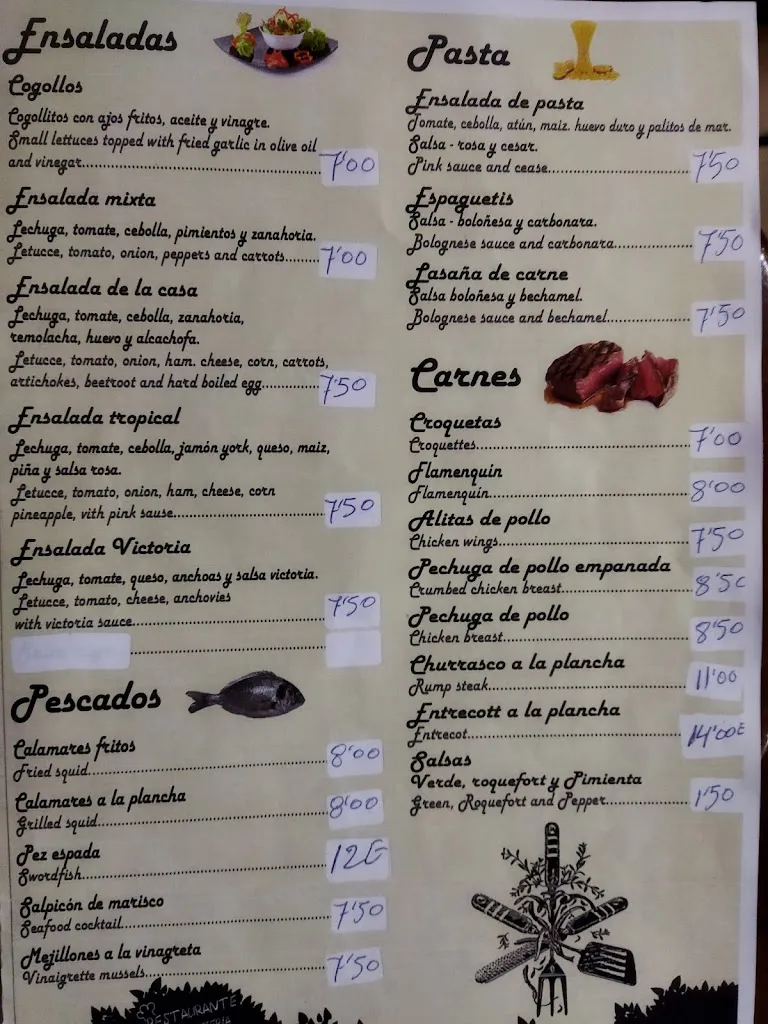 Ensaladas
Cogollos
Cogollitos con ajos fritos, aceite y vinagre.
Small lettuces topped with fried garlic in olive oil
and vinegar.......... 7'00
Ensalada mixta
Lechuga, tomate, cebolla, pimientos y zanahoria.
Letucce, tomato, onion, peppers and carrots.......... 7'00
Ensalada de la casa
Lechuga, tomate, cebolla, zanahoria,
remolacha, huevo y alcachofa.
Letucce, tomato, onion, ham. cheese, corn, carrots,
artichokes, beetroot and hard boiled egg.......... 7'50
Ensalada tropical
Lechuga, tomate, cebolla, jamón york, queso, maiz,
piña y salsa rosa.
Letucce, tomato, onion, ham, cheese, corn
pineapple, vith pink sause.......... 7'50
Ensalada Victoria
Lechuga, tomate, queso, anchoas y salsa victoria.
Letucce, tomato, cheese, anchovies
with victoria sauce.......... 7'50
Pescados
Calamares fritos
Fried squid.......... 8'00
Calamares a la plancha
Grilled squid.......... 8'00
Pez espada
Swordfish.......... 12€
Salpicón de marisco
Seafood cocktail.......... 7'50
Mejillones a la vinagreta
Vinaigrette mussels.......... 7'50
RESTAURANTE
Pasta
Ensalada de pasta
Tomate, cebolla, atún, maiz. huevo duro y palitos de mar.
Salsa - rosa y cesar.
Pink sauce and cease.......... 7'50
Espaguetis
Salsa - boloñesa y carbonara.
Bolognese sauce and carbonara.......... 7'50
Lasaña de carne
Salsa boloñesa y bechamel.
Bolognese sauce and bechamel.......... 7'50
Carnes
Croquetas
Croquettes.......... 7'00
Flamenquin
Flamenquin.......... 8'00
Alitas de pollo
Chicken wings.......... 7'50
Pechuga de pollo empanada
Crumbed chicken breast.......... 8'50
Pechuga de pollo
Chicken breast.......... 8'50
Churrasco a la plancha
Rump steak.......... 11'00
Entrecott a la plancha
Entrecot.......... 14'00€
Salsas
Verde, roquefort y Pimienta
Green, Roquefort and Pepper.......... 1'50